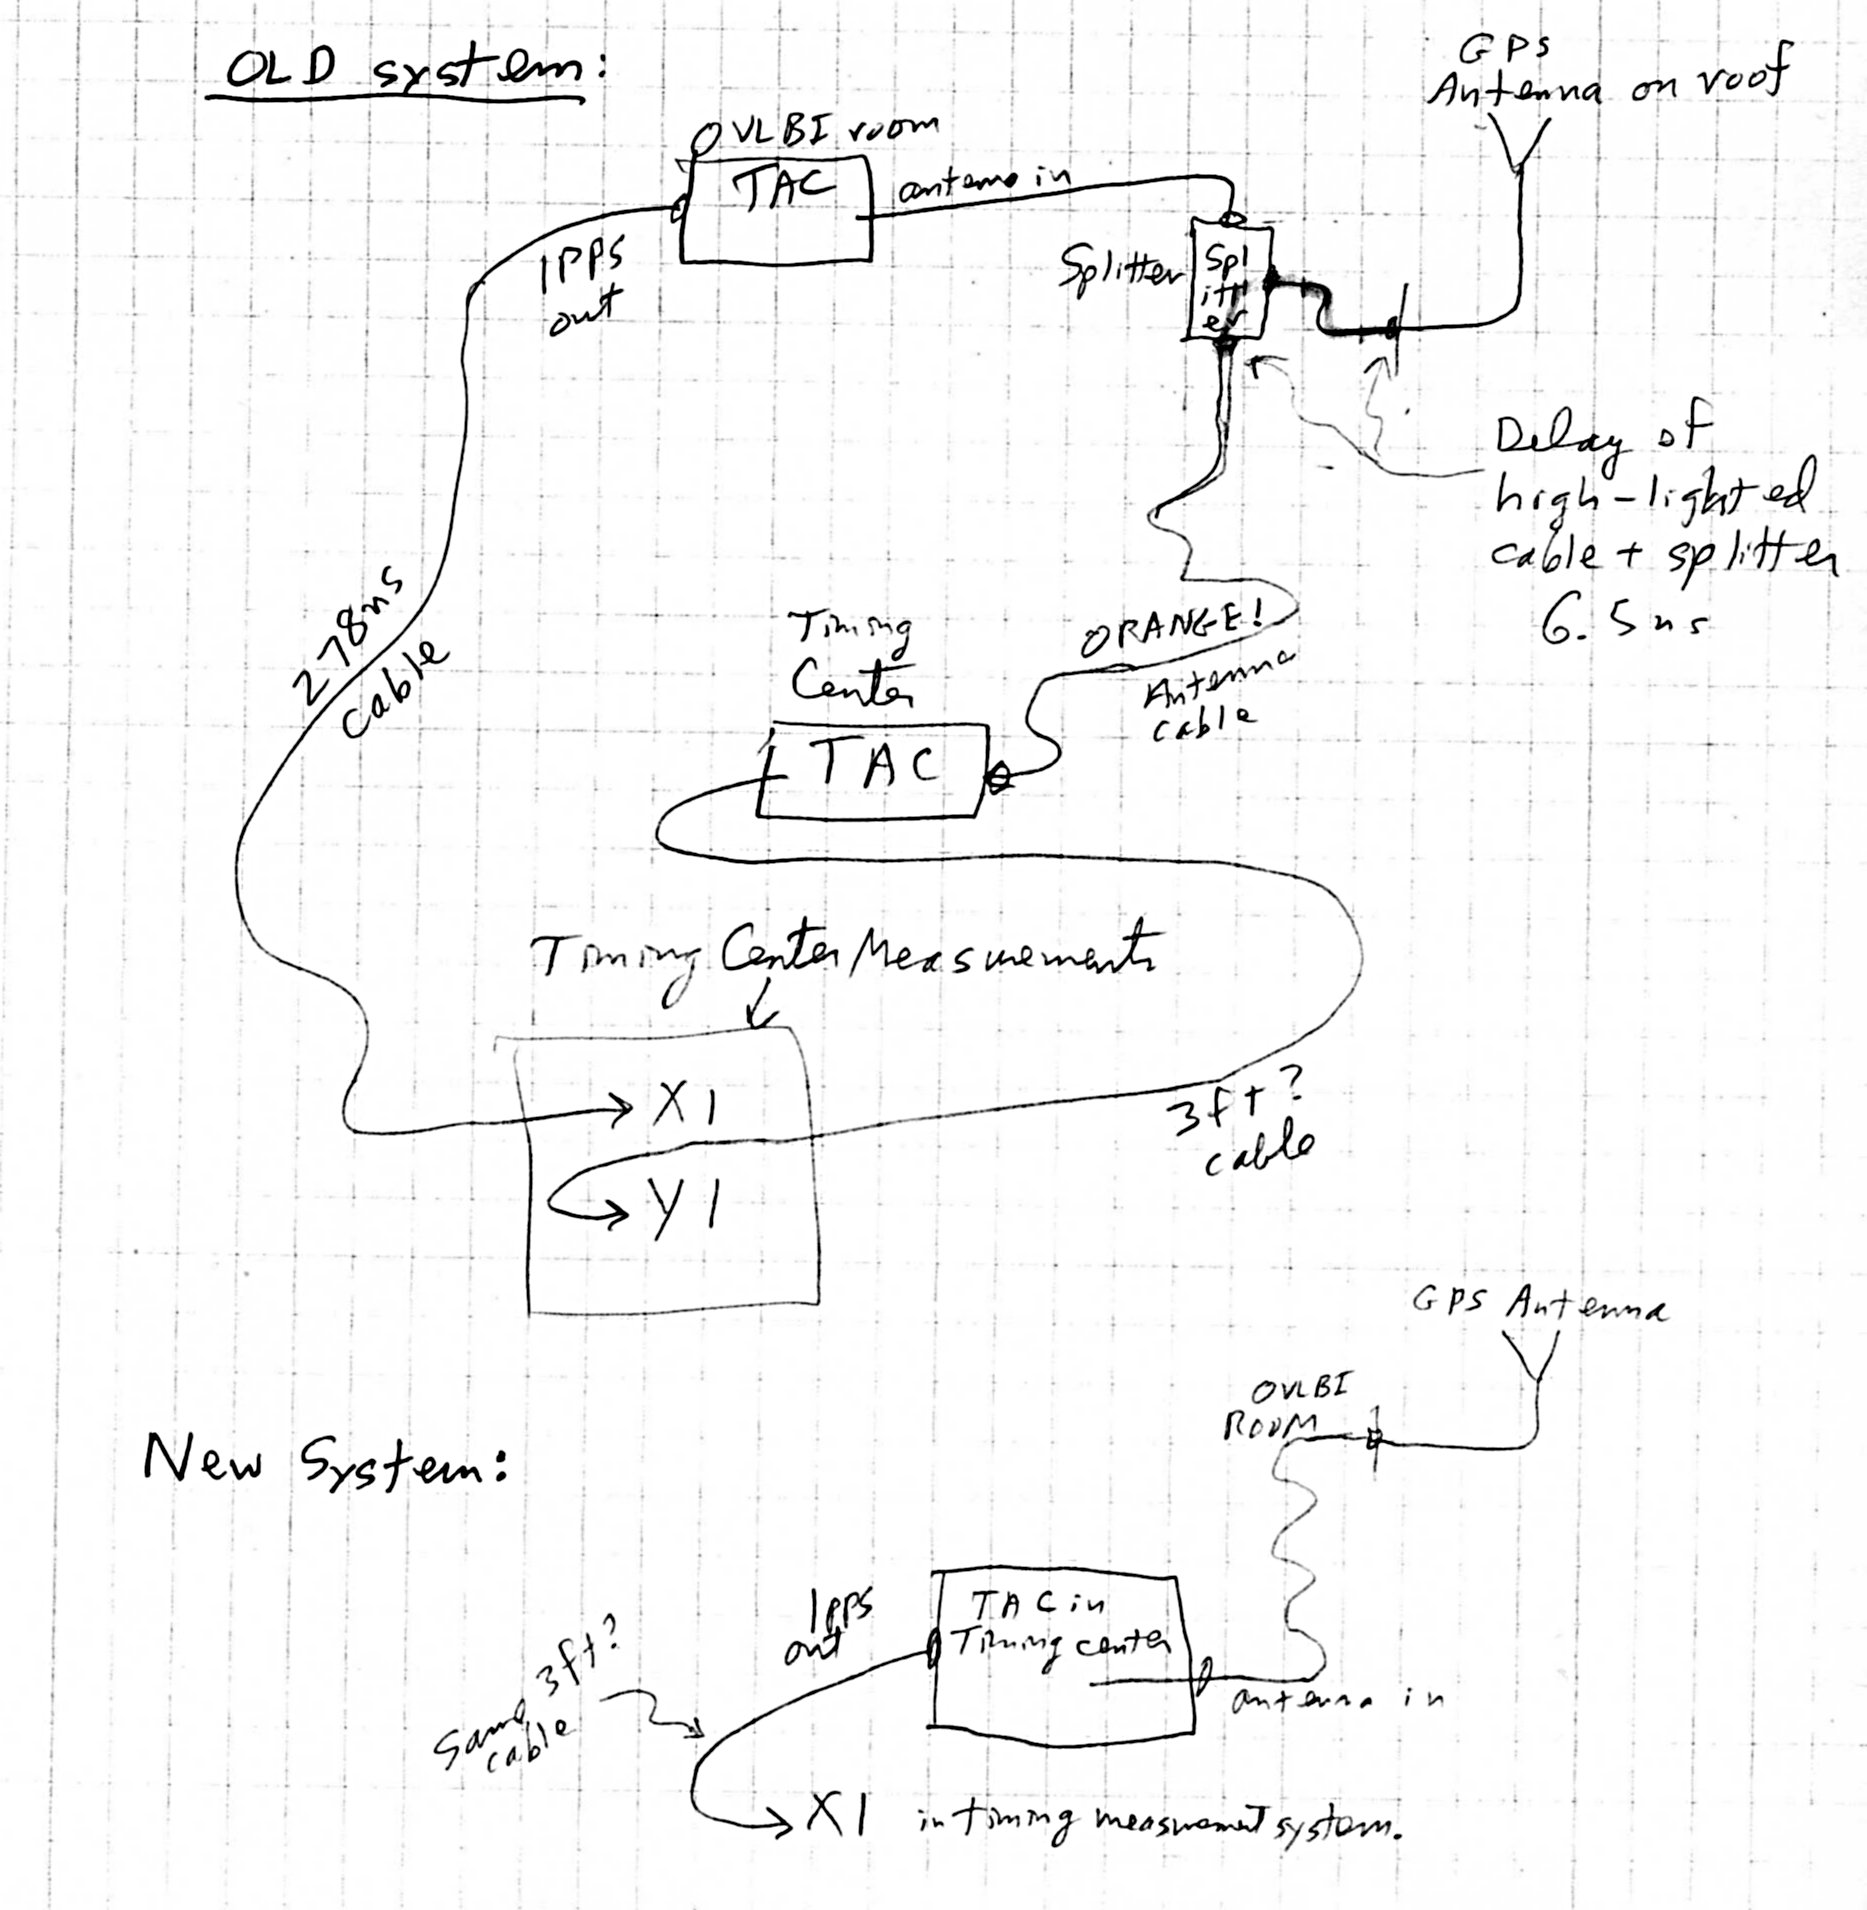 OLD system:
GPS
Antenna on roof
OVLBI room
TAC
antenna in
1PPS
out
Splitter
Spl
itt
er
Delay of
high-lighted
cable + splitter
6.5ns
278ns
cable
ORANGE!
Antenna
cable
Timing
Center
TAC
Timing Center Measurements
X1
Y1
3ft?
cable
GPS Antenna
OVLBI
ROOM
New System:
1pps
out
TAC in
Timing center
antenna in
Same 3ft?
cable
X1 in timing measurement system.